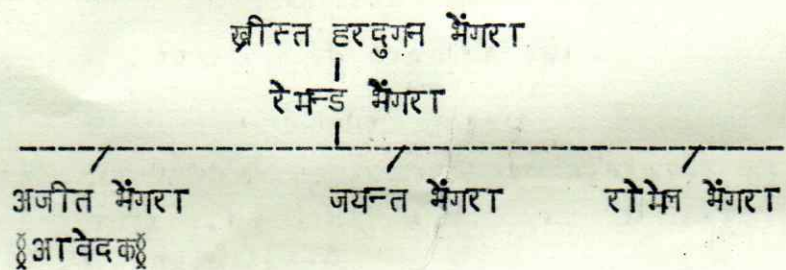 ख्रीस्त हरदुगन भेंगरा
रेमन्ड भेंगरा
अजीत भेंगरा जयन्त भेंगरा रोमेल भेंगरा
(आवेदक)